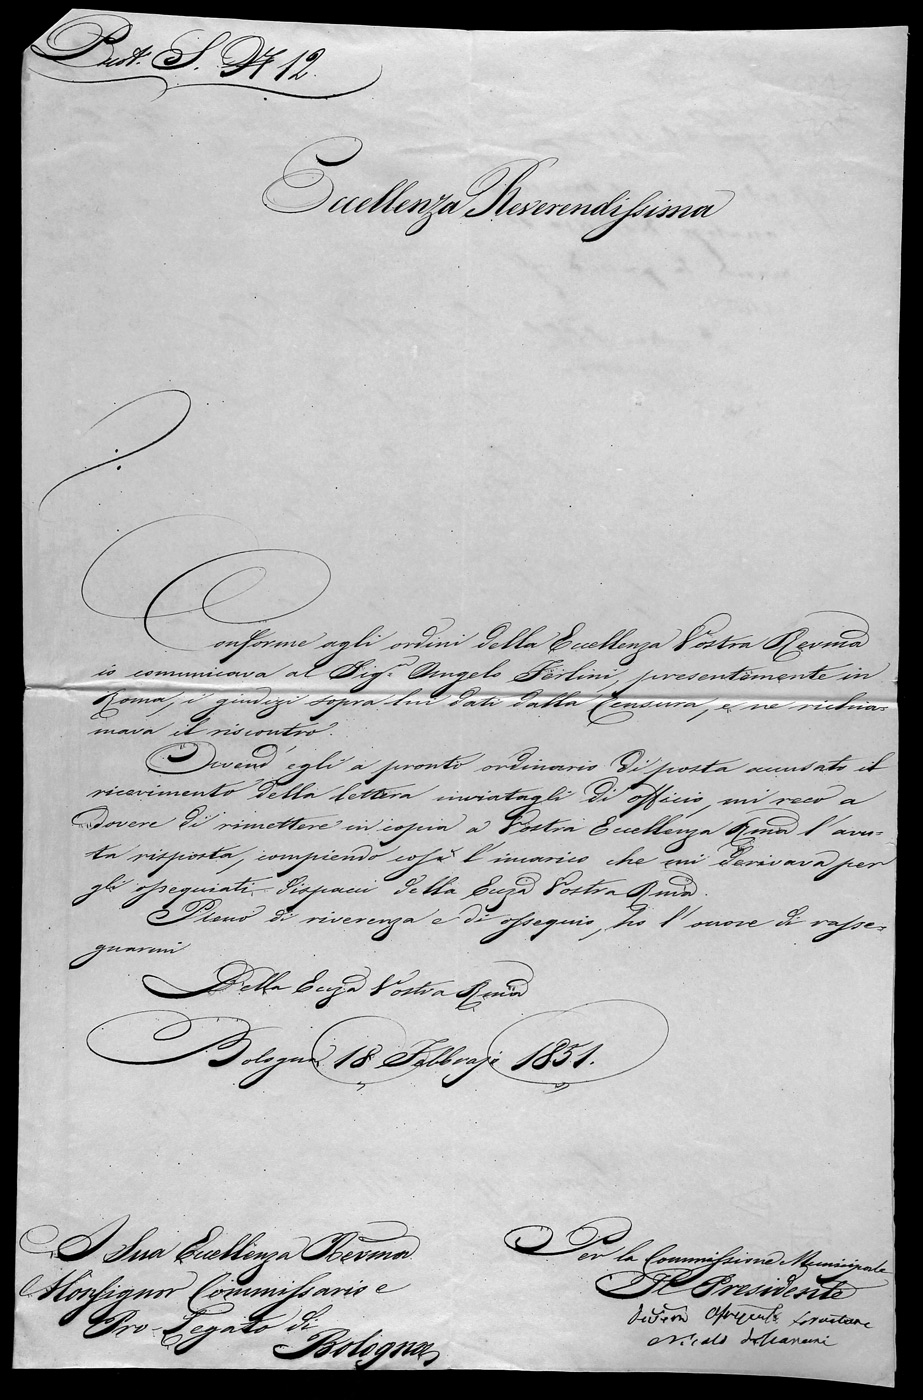 Prot. S. N. 12.
Eccellenza Reverendissima
Conforme agli ordini della Eccellenza Vostra Revma
io comunicava al Sigr. Angelo Ferlini, presentemente in
Roma, i giudizi sopra lui dati dalla Censura, e ne richia-
mava il riscontro.
Avend' egli a pronto ordinario di posta accusato il
ricevimento della lettera inviatagli di officio, mi reco a
dovere di rimettere in copia a Vostra Eccellenza Rma l'avu-
ta risposta, compiendo così l'incarico che mi derivava per
gli ossequiati dispacci della Ecza Vostra Rma.
Pieno di riverenza e di ossequio, ho l'onore di rasse-
gnarmi
Della Ecza Vostra Rma
Bologna 18 Febbraje 1851.
A Sua Eccellenza Revma
Monsignor Commissario e
Pro-Legato di
Bologna
Per la Commissione Municipale
Il Presidente